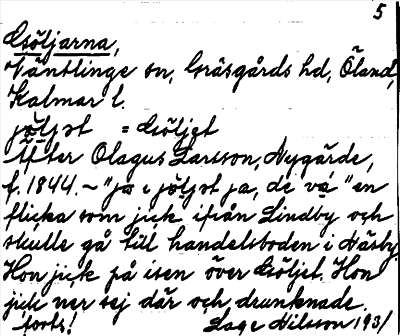 5
Gsöljarna,
Ventlinge sn, Gräsgårds hd, Öland,
Kalmar l.
jöljət = Gsöljet
Efter Olagus Larsson, Nygärde,
f. 1844. ~ "ja i jöljət ja, de va "en
flicka som jick ifrån Lindby och
skulle gå till handelsboden i Näsby.
Hon jick på isen över Gsöljet. Hon
jick ner sej där och drunknade.
forts! Lage Nilsson 1931